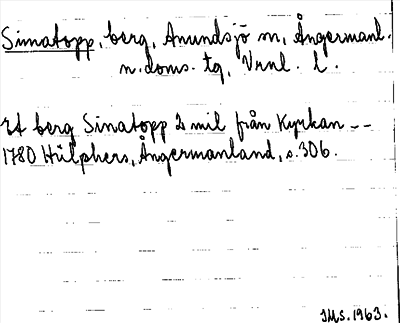 Simatopp, berg, Anundsjö sn, Ångermanl.
n. doms. tg, Vrnl. l.
Et berg Sinatopp 2 mil från Kyrkan --
1780 Hülphers, Ångermanland, s. 306.
IMS. 1963.